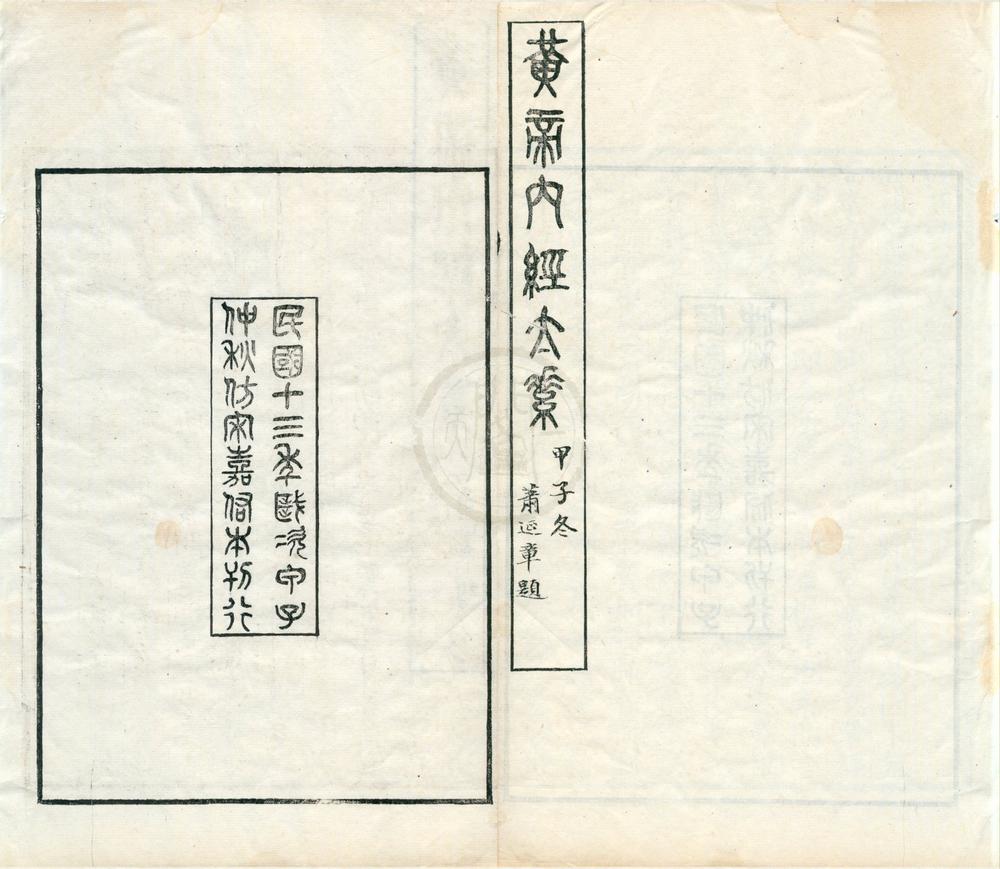 黃帝內經太素
甲子冬
蕭延章題
民國十三年歲次甲子
仲秋仿宋嘉祐本刊行